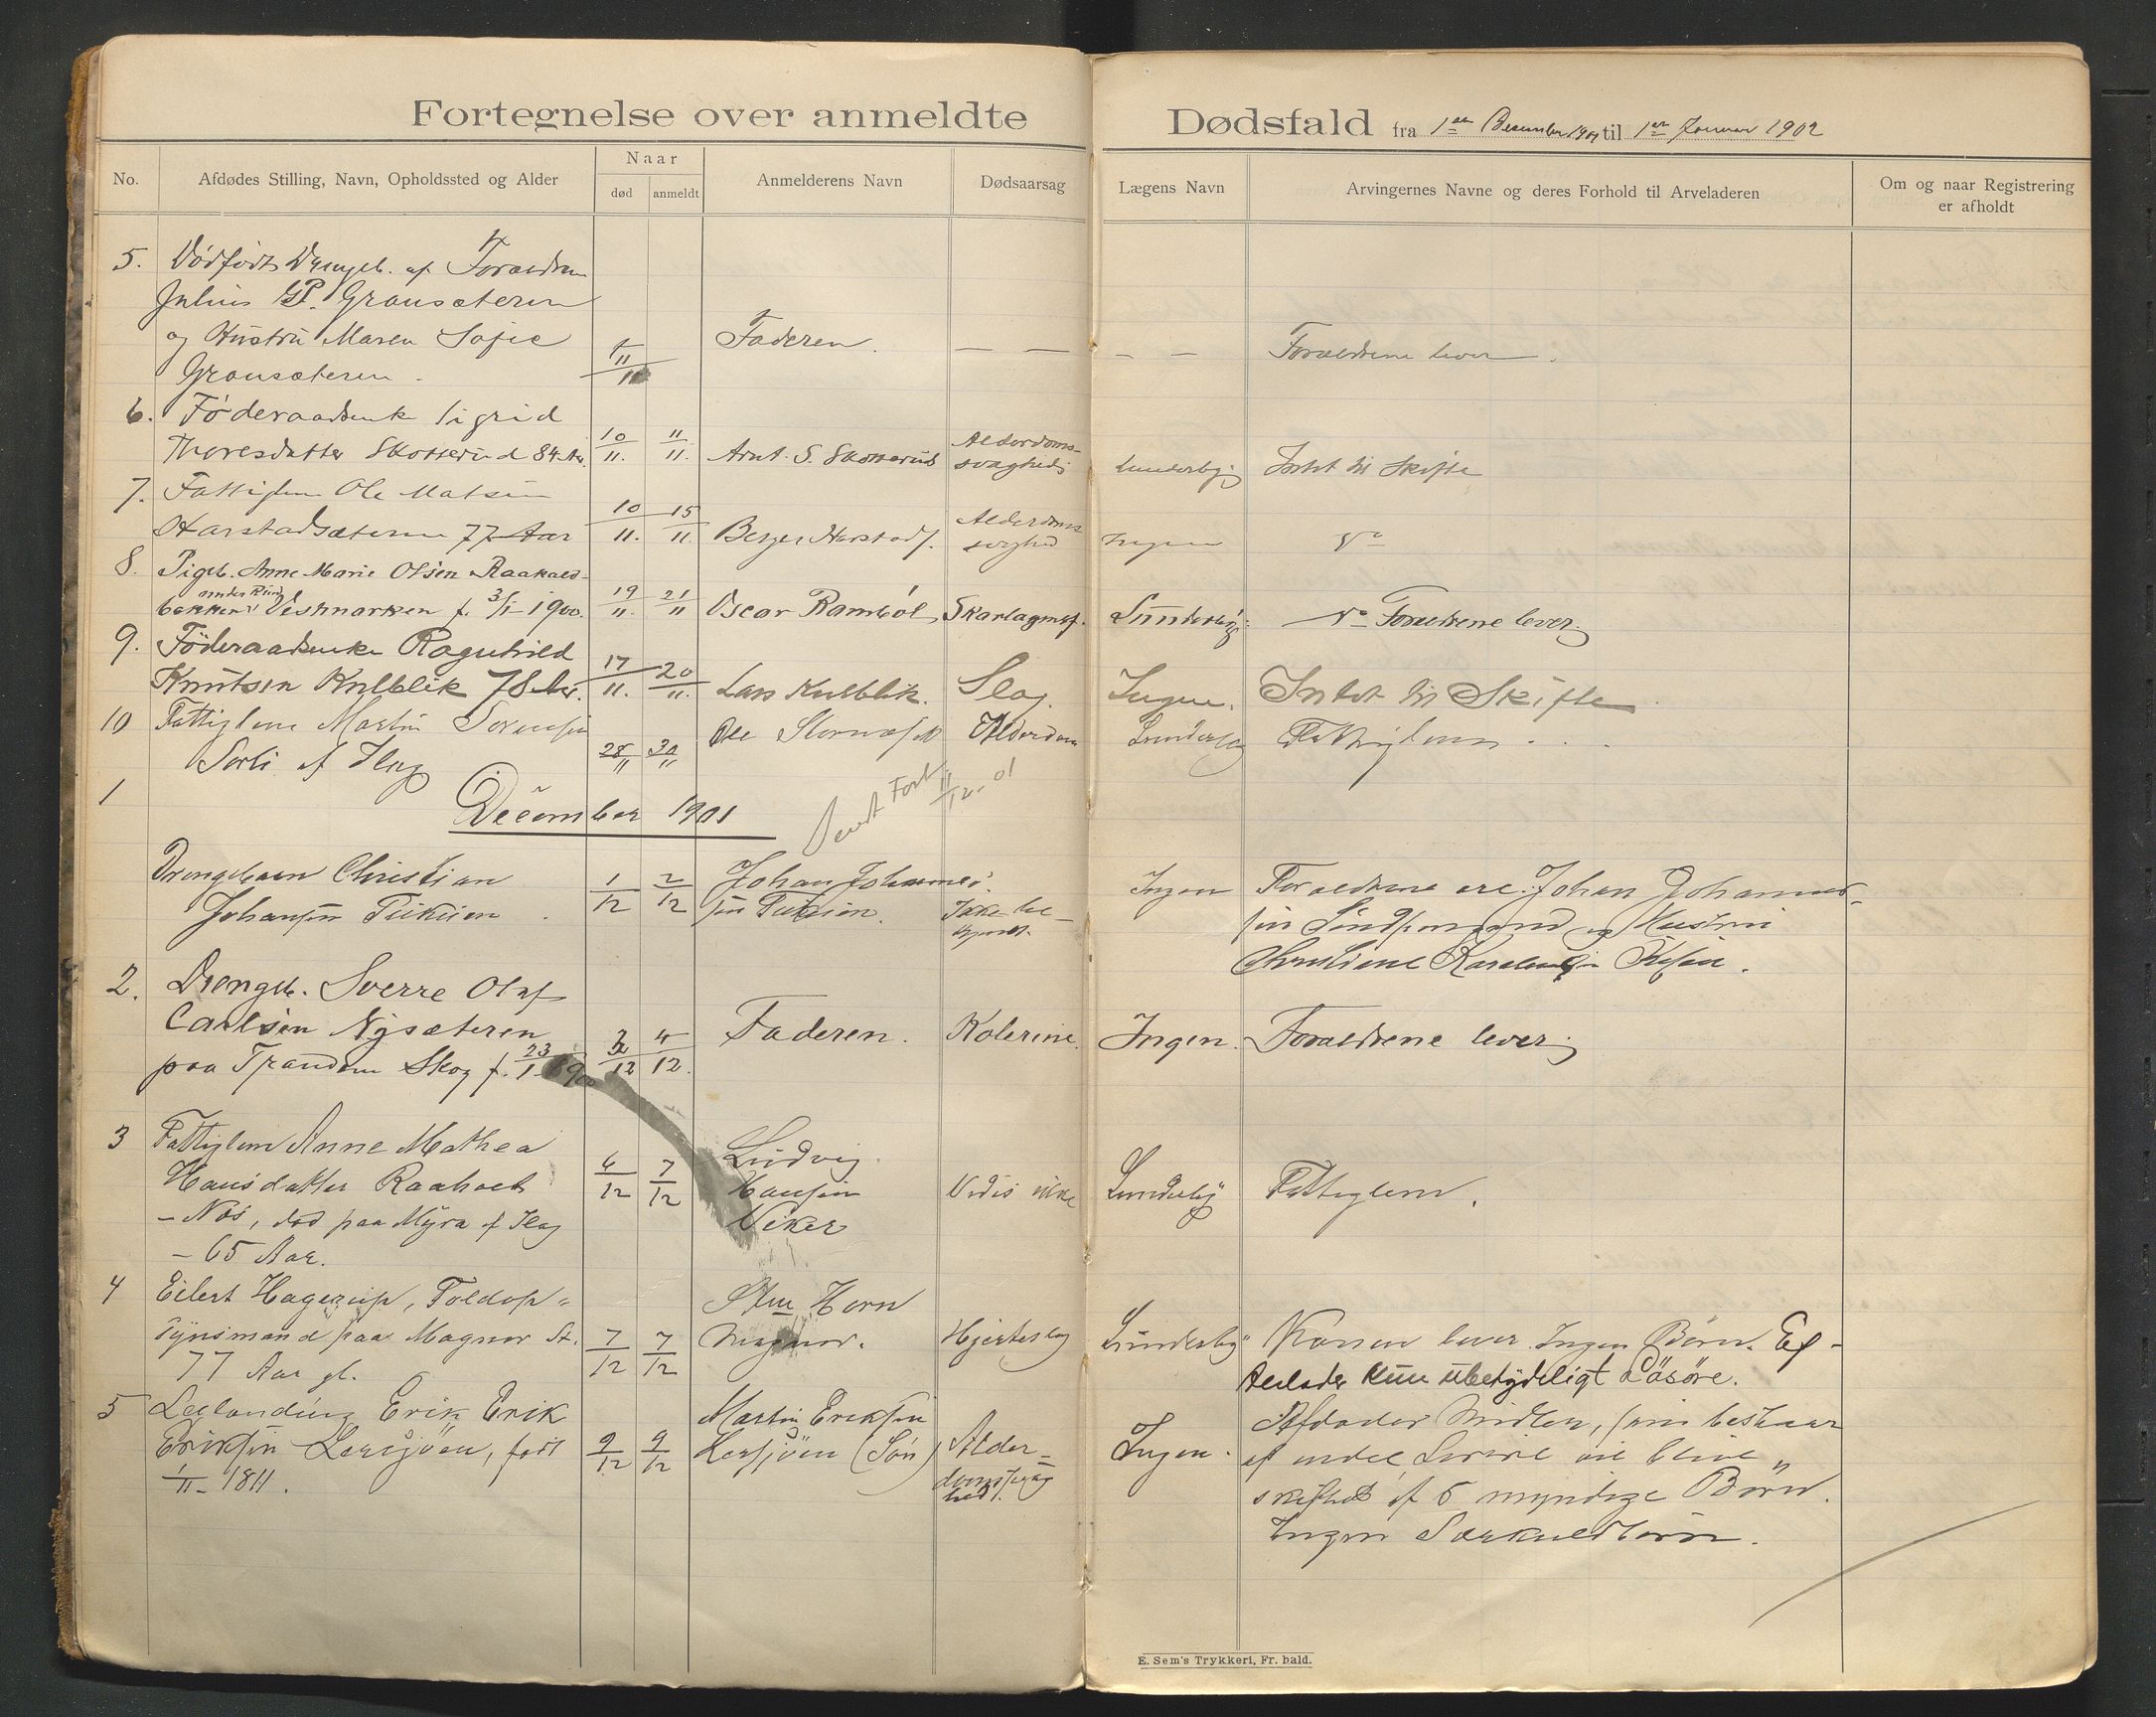 Fortegnelse over anmeldte Dødsfald fra 1ste December 1901 til 1ste Januar 1902
No. Afdødes Stilling, Navn, Opholdssted og Alder Naar død anmeldt Anmelderens Navn Dødsaarsag Lægens Navn Arvingernes Navne og deres Forhold til Arveladeren Om og naar Registrering er afholdt
5. Dödfödt Drengeb. af Foraeldrene
Julius Gransæteren
og Hustru Maren Sofie Faderen. — — — — Foraeldrene lever.
Gransæteren.
6. Föderaadsenke Sigrid
Thoresdatter Skotterud 84 Aar. 10/11. 11/11. Arnt. S. Skotterud Alderdoms-
svaghed Lunderbÿ Intet til Skifte
7. Fattiglem Ole Matsen
Harstadsæteren 77 Aar 10/11. 15/11. Berger Harstads. Alderdoms
svaghed Ingen Do
8. Pigeb. Anne Marie Olsen Raakald-
bakken under Rud Vestmarken f. 3/1 1900. 19/11. 21/11 Oscar Ramböl Skarlagensf. Lunderbÿe Do Foraeldrene lever.
9. Föderaadsenke Ragnhild
Knutsen Kulblik 78 Aar. 17/11. 20/11. Lars Kulblik. Slag. Ingen. Intet til Skifte
10 Fattiglem Martin Sorensen
Sorli af Haug 28/11 30/11 Ole Alderdom Lunderby Fattiglem . . .
1
December 1901
Sendt Fort. 11/12-01
Drengebarn Christian
Johansen 1/12 2/12 Johan Johannes-
sen Ikke be-
kjendt. Ingen Foraeldrene ere: Johan Johannes-
sen og Hustru
2. Drengeb. Sverre Olaf
Carlsen Nysæteren
paa Trandem Skog f. 23/1 1900 3/12 4/12. Faderen. Kolerine. Ingen. Foraeldrene lever.
3 Fattiglem Anne Mathea
Hansdatter Raaholt
- Nos, død paa Myra af Haug
- 65 Aar. 6/12 7/12 Ludvig
Hansen
Viker Vides ikke Lunderby Fattiglem.
4 Eilert Hagerup, Toldop-
synsmand paa Magnor St.
77 Aar gl. 7/12 7/12 Horn
Magnor. Hjerteslag Lunderby Konen lever. Ingen Börn. Ef-
terlader kun ubetydeligt Lösöre.
5 Leilænding Erik Erik
Eriksen Lersjöen, födt
1/11- 1811. 9/12 9/12 Martin Eriksen
Lersjöen (Sön) Alder-
domssvag
hed. Ingen. Afdödes Midler, som bestaar
af endel Lösöre vil blive
skiftet af 5 myndige Börn.
Ingen Særkuldbörn.
E. Sem's Trykkeri, Fr. hald.